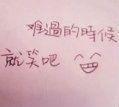 難過的時候
就笑吧